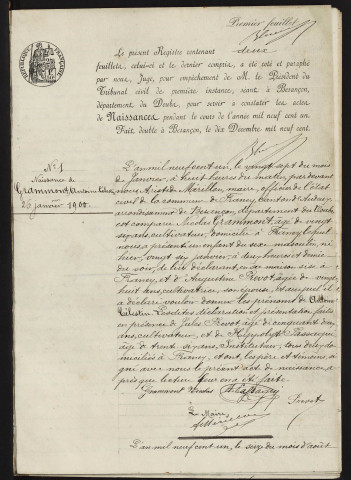 Premier feuillet
Le présent Registre contenant deux
feuillets, celui-ci et le dernier compris, a été coté et paraphé
par nous, Juge, pour empêchement de M. le Président du
Tribunal civil de première instance, séant à Besançon,
département du Doubs, pour servir à constater les actes
de Naissances pendant le cours de l'année mil neuf cent un.
Fait double à Besançon, le dix Décembre mil neuf cent.
RÉPUBLIQUE FRANÇAISE
N° 1
Naissance de
Grammont, Antoine
26 janvier 1901
L'an mil neuf cent un, le vingt sept du mois
de Janvier, à huit heures du matin, par devant
nous Aristide Mérillon, maire, officier de l'état
civil de la commune de Franey, canton d'Audeux,
arrondissement de Besançon, département du Doubs,
est comparu Nicolas Grammont, âgé de vingt
six ans, cultivateur, domicilié à Franey, lequel
nous a présenté un enfant du sexe masculin, né
hier, vingt six janvier, à deux heures et demie
du soir, de lui déclarant, en sa maison sise à
Franey, et d'Augustine Prevot, âgée de vingt
huit ans, cultivatrice, son épouse, et auquel il
a déclaré vouloir donner les prénoms de
Célestin. Lesdites déclaration et présentation faites
en présence de Jules Prevot, âgé de cinquante deux
ans, cultivateur, et de Hippolyte
âgé de trente six ans, instituteur, tous deux do-
miciliés à Franey, et ont, les père et témoins, si-
gné avec nous le présent acte de naissance, a-
près que lecture leur en a été faite.
Grammont Nicolas Prevot
Le Maire
Mérillon
L'an mil neuf cent un, le seize du mois d'août